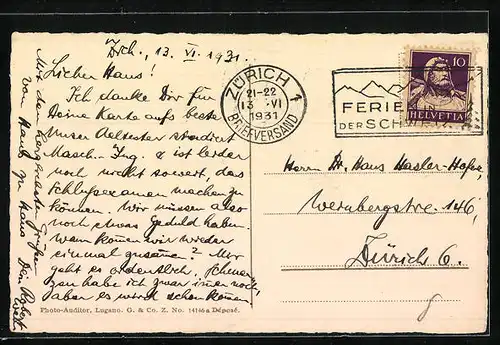 Zrch., 13. VI. 1931.
Lieber Hans!
Ich danke Dir für
Deine Karte aufs beste
Unser Aeltester studiert
Masch.-Ing. & ist leider
noch nicht soweit, das
Schlussexamen machen zu
können. Wir müssen also
noch etwas Geduld haben.
Wann kommen wir wieder
einmal zusammen? Mir
geht es ordentlich, Schmer-
zen habe ich zwar immer noch,
aber es wird schon kommen.
Mit den herzlichsten Grüssen
von Haus zu Haus Dein
Photo-Auditor, Lugano. G. & Co. Z. No. 14146 a Déposé.
ZÜRICH 1
21-22
13. VI
1931
BRIEFVERSAND
FERIEN IN
DER SCHWEIZ
10
HELVETIA
Herrn Dr. Hans Hasler-Hofer
Nernbergstr. 146,
Zürich 6.